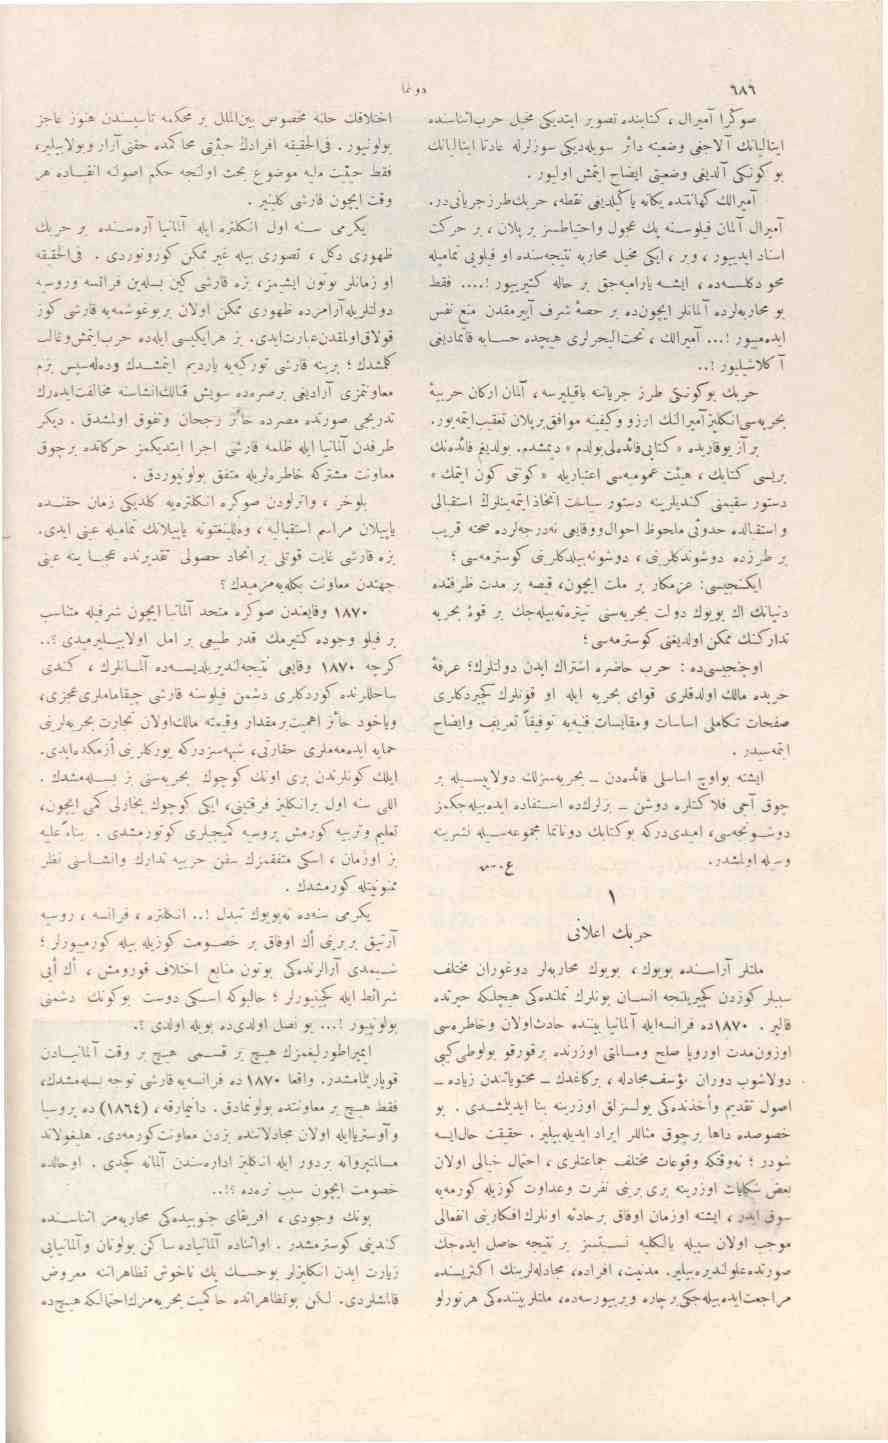 ٦٨٦
دونما
صوڭرا آميرال ، كتابنده تصوير ايتديكى مخيل حرب اثناسنده
ايتاليانك آلاجغى وضعيته دائر سويله‌ديكى سوزلرله عادتا ايتاليانك
بوكونكى آلديغى وضعيتى ايضاح ايتمش اوليور .
آميرالك كهانتنده يكانه ياڭيلديغى نقطه، حربك طرز جريانى‌در.
آميرال آلمان فيلوسنه پك عجول واحتياطسز بر پلان ، بر حركت
اسناد ايدييور ، وبر ، ايكى مخيل محاربه نتيجه‌سنده او فيلويى تماميله
محو دكلسه‌ده ، ايشه ياراميه‌جق بر حاله كتيرييور !.... فقط
بو محاربه‌لرده آلمانلر ايچون‌ده بر حصهٔ شرف آييرمقدن منع نفس
ايده‌مييور !... آميرالك ، تحت‌البحرلرى هيچده حسابه قاتماديغى
آكلاشيليور !..
حربك بوكونكى طرز جرياننه باقيليرسه ، آلمان اركان حربيهٔ
بحريه‌سى انكليز آميرالنك ارزو وكيفينه موافق بر پلان تعقيب ايتمه‌يور.
بر آز يوقاريده « كتابى فائده‌لى بولدم » ديمشدم. بولديغم فائده‌نك
بريسى كتابك ، هيئت عموميه‌سى اعتباريله « كوتى كون ايتمك »
دستور سقيمنى كنديلرينه دستور سياست اتخاذ ايتمه‌ينلرك استقبالى
واستقبالده حدوثى ملحوظ احوال ووقايعى نه‌درجه‌لرده صحته قريب
بر طرزده دوشوندكلرينى ، دوشونه‌بيلدكلرينى كوسترمه‌سى ؛
ايكنجيسى: عزمكار بر ملت ايچون، قيصه بر مدت ظرفنده
دنيانك اك بويوك دولت بحريه‌سنى تيتره‌ته‌بيله‌جك بر قوهٔ بحريه
تداركنك ممكن اولديغنى كوسترمه‌سى ؛
اوچنجيسى‌ده : حرب حاضره اشتراك ايدن دولتلرك؛ عرفهٔ
حربده مالك اولدقلرى قواى بحريه ايله او قوتلرك كچيردكلرى
صفحات تكاملى اساسات ومقايسات فنيه‌يه توفيقاً تعريف وايضاح
ايتمه‌سيدر .
ايشته بو اوچ اساسلى فائده‌دن – بحريه‌سزلك دولاييسيله بر
چوق آجى فلاكتلره دوشن – بزلرك‌ده استفاده ايده‌بيله‌جكمز
دوشونجه‌سى، اميدى‌دركه بوكتابك دوناما مجموعه‌سيله نشرينه
وسيله اولمشدر.
ع.
١
حربك اعلانى
ملتلر آراسنده بويوك، بويوك محاربه‌لر دوغوران مختلف
سببلر كوزدن كچيريلنجه انسان بونلرك تملنده‌كى هيچلكه حيرتده
قالير . ١٨٧٠ده فرانسه‌ايله آلمانيا بيننده حادث اولان وخاطره‌سى
اوزون مدت اوروپا صلح ومسالمتى اوزرنده بر قورقو بولوطى كبى
دولاشوب دوران مؤسف مجادله ، بر كاغدك – محتوياتندن زياده –
اصول تقديم وأخذنده‌كى يولسزلق اوزرينه بنا ايديلمشدى . بو
خصوصده داها برچوق مثاللر ايراد ايديله‌بيلير . حقيقت حال ايسه
شودر ؛ نه‌وقتكه وقوعات مختلف جماعتلرى ، احتمال خيالى اولان
بعض شكايات اوزرينه برى برينى نفرت وعداوت كوزيله كورمه‌يه
سوق ايدر ، ايشته اوزمان اوفاق بر حادثه اونلرك افكارينى انفعالى
موجب اولان سببله بالكليه نسبتسز بر نتيجه حاصل ايده‌جك
صورتده علولنديره‌بيلير. مدنيت، افراده، مجادله‌لرينك اكثريسنده
مراجعت ايده‌بيله‌جكى بر چاره ويرييورسه‌ده، ملتلر بيننده‌كى هرنورلو
اختلافك حلنه مخصوص بين‌الملل بر محكمه تأسيسندن هنوز عاجز
بولونيور . فى‌الحقيقه افرادك حيثيتى محاكمده حقنى آرار وبولابيلير،
فقط حيثيت مليه موضوع بحث اولنجه حكم اصولنه انقياده هر
وقت ايچون قارشى كلينير .
يكرمى سنه اول انكلتره ايله آلمانيا آره‌سنده بر حربك
ظهورى دكل ، تصورى بيله غير ممكن كورونوردى . فى‌الحقيقه
او زمانلر بوتون ايشمز، بزه قارشى كين بسله‌ين فرانسه وروسيه
دولتلريله آرامزده ظهورى ممكن اولان بر بوغوشمه‌يه قارشى كوز
قولاق اولمقدن عبارت ايدى. بز هر ايكيسى ايله‌ده حرب ايتمش وغالب
كلمشدك ؛ برينه قارشى توركيه‌يه يارديم ايتمشدك وده‌له‌سپس بزم
معاونتمزى آراديغى بر صره‌ده سويش قنالنك انشاسنه مخالفت ايده‌رك
تدريجى صورتده مصرده حائز رجحان وتفوق اولمشدق . ديكر
طرفدن آلمانيا ايله ظلمه قارشى اجرا ايتديكمز حركاتده برچوق
معاونت مشتركه خاطره‌لريله متفق بولونيوردق .
بلوخر ، واترلودن صوكره انكلتره‌يه كلديكى زمان حقنده
ياپيلان مراسم استقباليه ، وه‌للينغتونه ياپيلانك تماميله عينى ايدى.
بزه قارشى غايت قوتلى بر اتحاد حصولى تقديرنده عجبا ينه عينى
جهتدن معاونت بكله‌يه‌مزميدك ؟
١٨٧٠ وقايعندن صوكره متحد آلمانيا ايچون شرفيله متناسب
بر فيلو وجوده كتيرمك قدر طبيعى بر امل اولابيليرميدى ؟..
كرچه ١٨٧٠ وقايعى نتيجه‌لنديريلديسه‌ده آلمانلرك ، كندى
ساحللرنده كوردكلرى دشمن فيلوسنه قارشى چيقاماملرى عجزى،
وياخود حائز اهميت بر مقدار وقيمته مالك اولان تجارت بحريه‌لرينى
حمايه ايده‌مه‌ملرى حقارتى، شبهه‌سزدركه يوركلرينى ازمكده‌ايدى.
ايلك كونلرندن برى اونك كوچوك بحريه‌سنى بز بسله‌مشدك .
اللى سنه اول بر انكليز فرقتينى، ايكى كوچوك بخارلى كمى ايچون،
تعليم وتربيه كورمش پروسيه كميجيلرى كوتورمشدى . بناءً عليه
بز اوزمان ، اسكى متفقمزك سفن حربيه تدارك وانشاسنى نظر
ممنونيتله كورمشدك .
يكرمى سنه‌ده نه‌بويوك تبدل !.. انكلتره ، فرانسه ، روسيه
آرتيق بربرينى اك اوفاق بر خصومت كوزيله بيله كورميورلر ؛
شيمدى آرالرنده‌كى بوتون منابع اختلاف قورومش ، اك أيى
شرائط ايله كچينيورلر ؛ حالبوكه اسكى دوست بوكونك دشمنى
بولونييور !... بو نصل اولدى‌ده بويله اولدى ؟.
ايمپراطورليغمزك هيچ بر قسمى هيچ بر وقت آلمانيادن
قوپاريلمامشدر. واقعا ١٨٧٠ ده فرانسه‌يه قارشى توجه بسله‌مشدك،
فقط هيچ بر معاونتده بولونمادق. دانيمارقه، (١٨٦٤) ده پروسيا
وآوستريا ايله اولان مجادلاتنده بزدن معاونت كورمه‌دى. هليغولاند
مسالمتپروانه بر دور ايله انكليز اداره‌سندن آلمانه كچدى . اوحالده
خصومت ايچون سبب نره‌ده ؟!..
بونك وجودى ، افريقاى جنوبيده‌كى محاربه‌مز اثناسنده
كندينى كوسترمشدر . اوائناده آلمانياده ساكن بولونان وآلمانيايى
زيارت ايدن انكليزلر بوحسك پك ناخوش تظاهراتنه معروض
قالمشلردى. لكن بو تظاهراتده حاكميت بحريه‌مزك احتمالكه هيچ‌ده